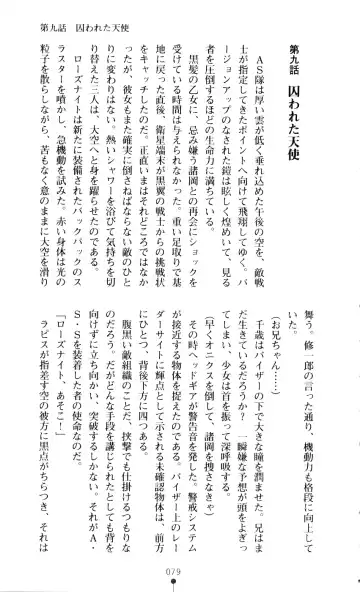 第九話　囚われた天使
第九話　囚われた天使
　ＡＳ隊は厚い雲が低く垂れ込めた午後の空を、敵戦
士が指定してきたポイントへ向けて飛翔してゆく。バ
ージョンアップのなされた鎧は眩しく煌めいて、見る
者を圧倒するほどの生命力に満ちている。
　黒髪の乙女に、忌み嫌う諸岡との再会にショックを
受けている時間は与えられなかった。重い足取りで基
地に戻った直後、衛星端末が黒翼の戦士からの挑戦状
をキャッチしたのだ。正直いまはそれどころではなか
ったが、彼女もまた確実に倒さねばならない敵のひと
りに変わりはない。熱いシャワーを浴びて気持ちを切
り替えた三人は、大空へと身を躍らせたのだった。
　ローズナイトは新たに装備されたバックパックのス
ラスターを噴かし、急機動を試みた。赤い身体は光の
粒子を散らしながら、苦もなく意のままに大空を滑り
舞う。修一郎の言った通り、機動力も格段に向上して
いた。
（お兄ちゃん……）
　千歳はバイザーの下で大きな瞳を潤ませた。兄はま
だ生きているだろうか？　一瞬嫌な予想が頭をよぎっ
てしまい、少女は首を振って深呼吸する。
（早くオニクスを倒して、諸岡を捜さなきゃ）
　その時ヘッドギアが警告音を発した。警戒システム
が接近する物体を捉えたのである。バイザー上のレー
ダーサイトに輝点として示される未確認物体は、前方
にひとつ、背後下方に四つある。
　腹黒い敵組織のことだ、挟撃でも仕掛けるつもりな
のだろう。だがどんな手段を講じられたとしても背を
向けずに立ち向かい、突破するしかない。それがＡ・
Ｓ・Ｓを装着した者の使命なのだ。
「ローズナイト、あそこ！」
　ラピスが指差す空の彼方に黒点がちらつき、それは
079